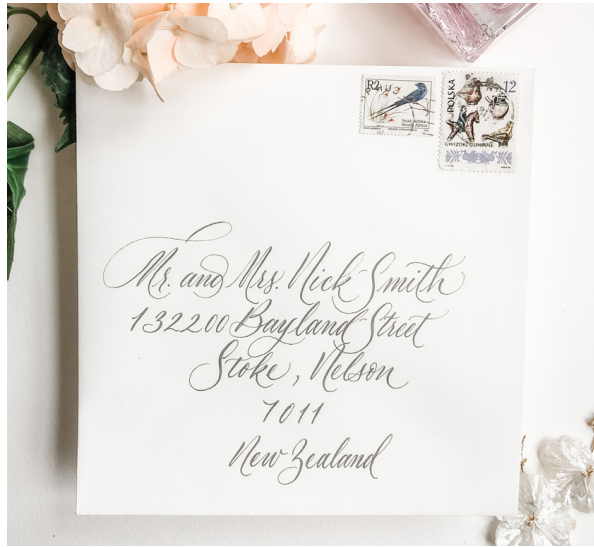 R2
POLSKA
12
GWIZDKI GLINIANE
Mr. and Mrs. Nick Smith
132200 Bayland Street
Stoke, Nelson
7011
New Zealand